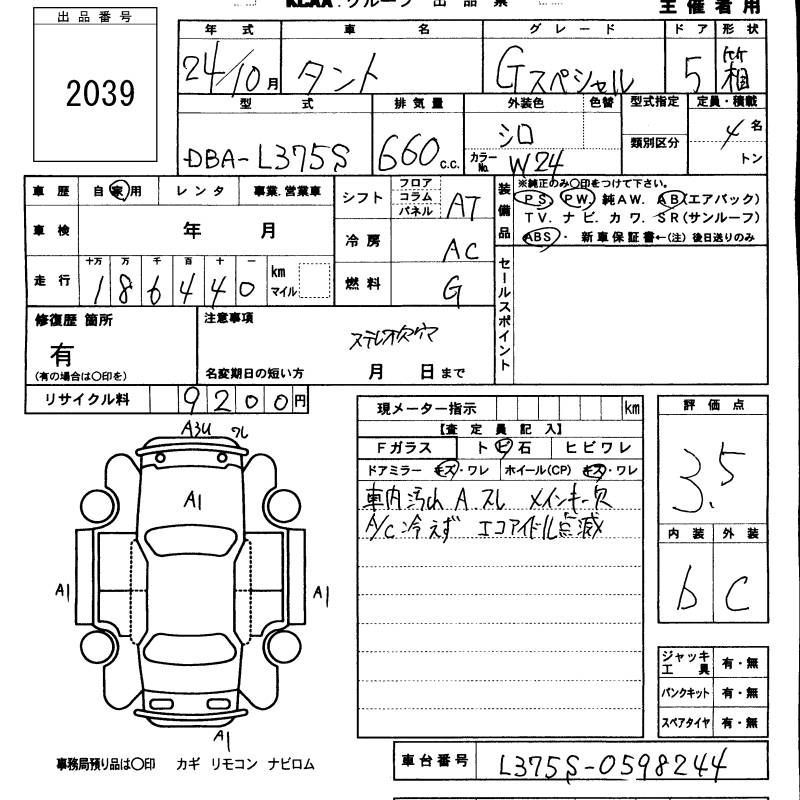 KCAA.グループ 出品票 主催者用
出品番号
2039
年式 車名 グレード ドア 形状
24/10月 タント Gスペシャル 5 箱
型式 排気量 外装色 色替 型式指定 定員・積載
DBA-L375S 660c.c. シロ 類別区分 4名
カラーNo. W24 トン
車歴 自家用 レンタ 事業.営業車
車検 年 月
走行 十万 万 千 百 十 一 km マイル
1 8 6 4 4 0
シフト フロア コラム パネル AT
冷房 AC
燃料 G
装備品 ※純正のみ○印をつけて下さい。
PS. PW. 純AW. AB(エアバック)
TV. ナビ. カワ. SR(サンルーフ)
ABS・ 新車保証書←(注)後日送りのみ
セールスポイント
修復歴 箇所
有
(有の場合は○印を)
注意事項
ステレオ欠穴
名変期日の短い方 月 日まで
リサイクル料 9200円
A3U ワレ
A1
A1
A1
A1
現メーター指示 km
【査定員記入】
Fガラス トビ石 ヒビワレ
ドアミラー キズ・ワレ ホイール(CP) キズ・ワレ
車内汚れ A.スレ メインキー欠
A/C冷えず エコアイドル点滅
評価点
3.5
内装 外装
b C
ジャッキ工具 有・無
パンクキット 有・無
スペアタイヤ 有・無
事務局預り品は○印 カギ リモコン ナビロム
車台番号 L375S-0598244